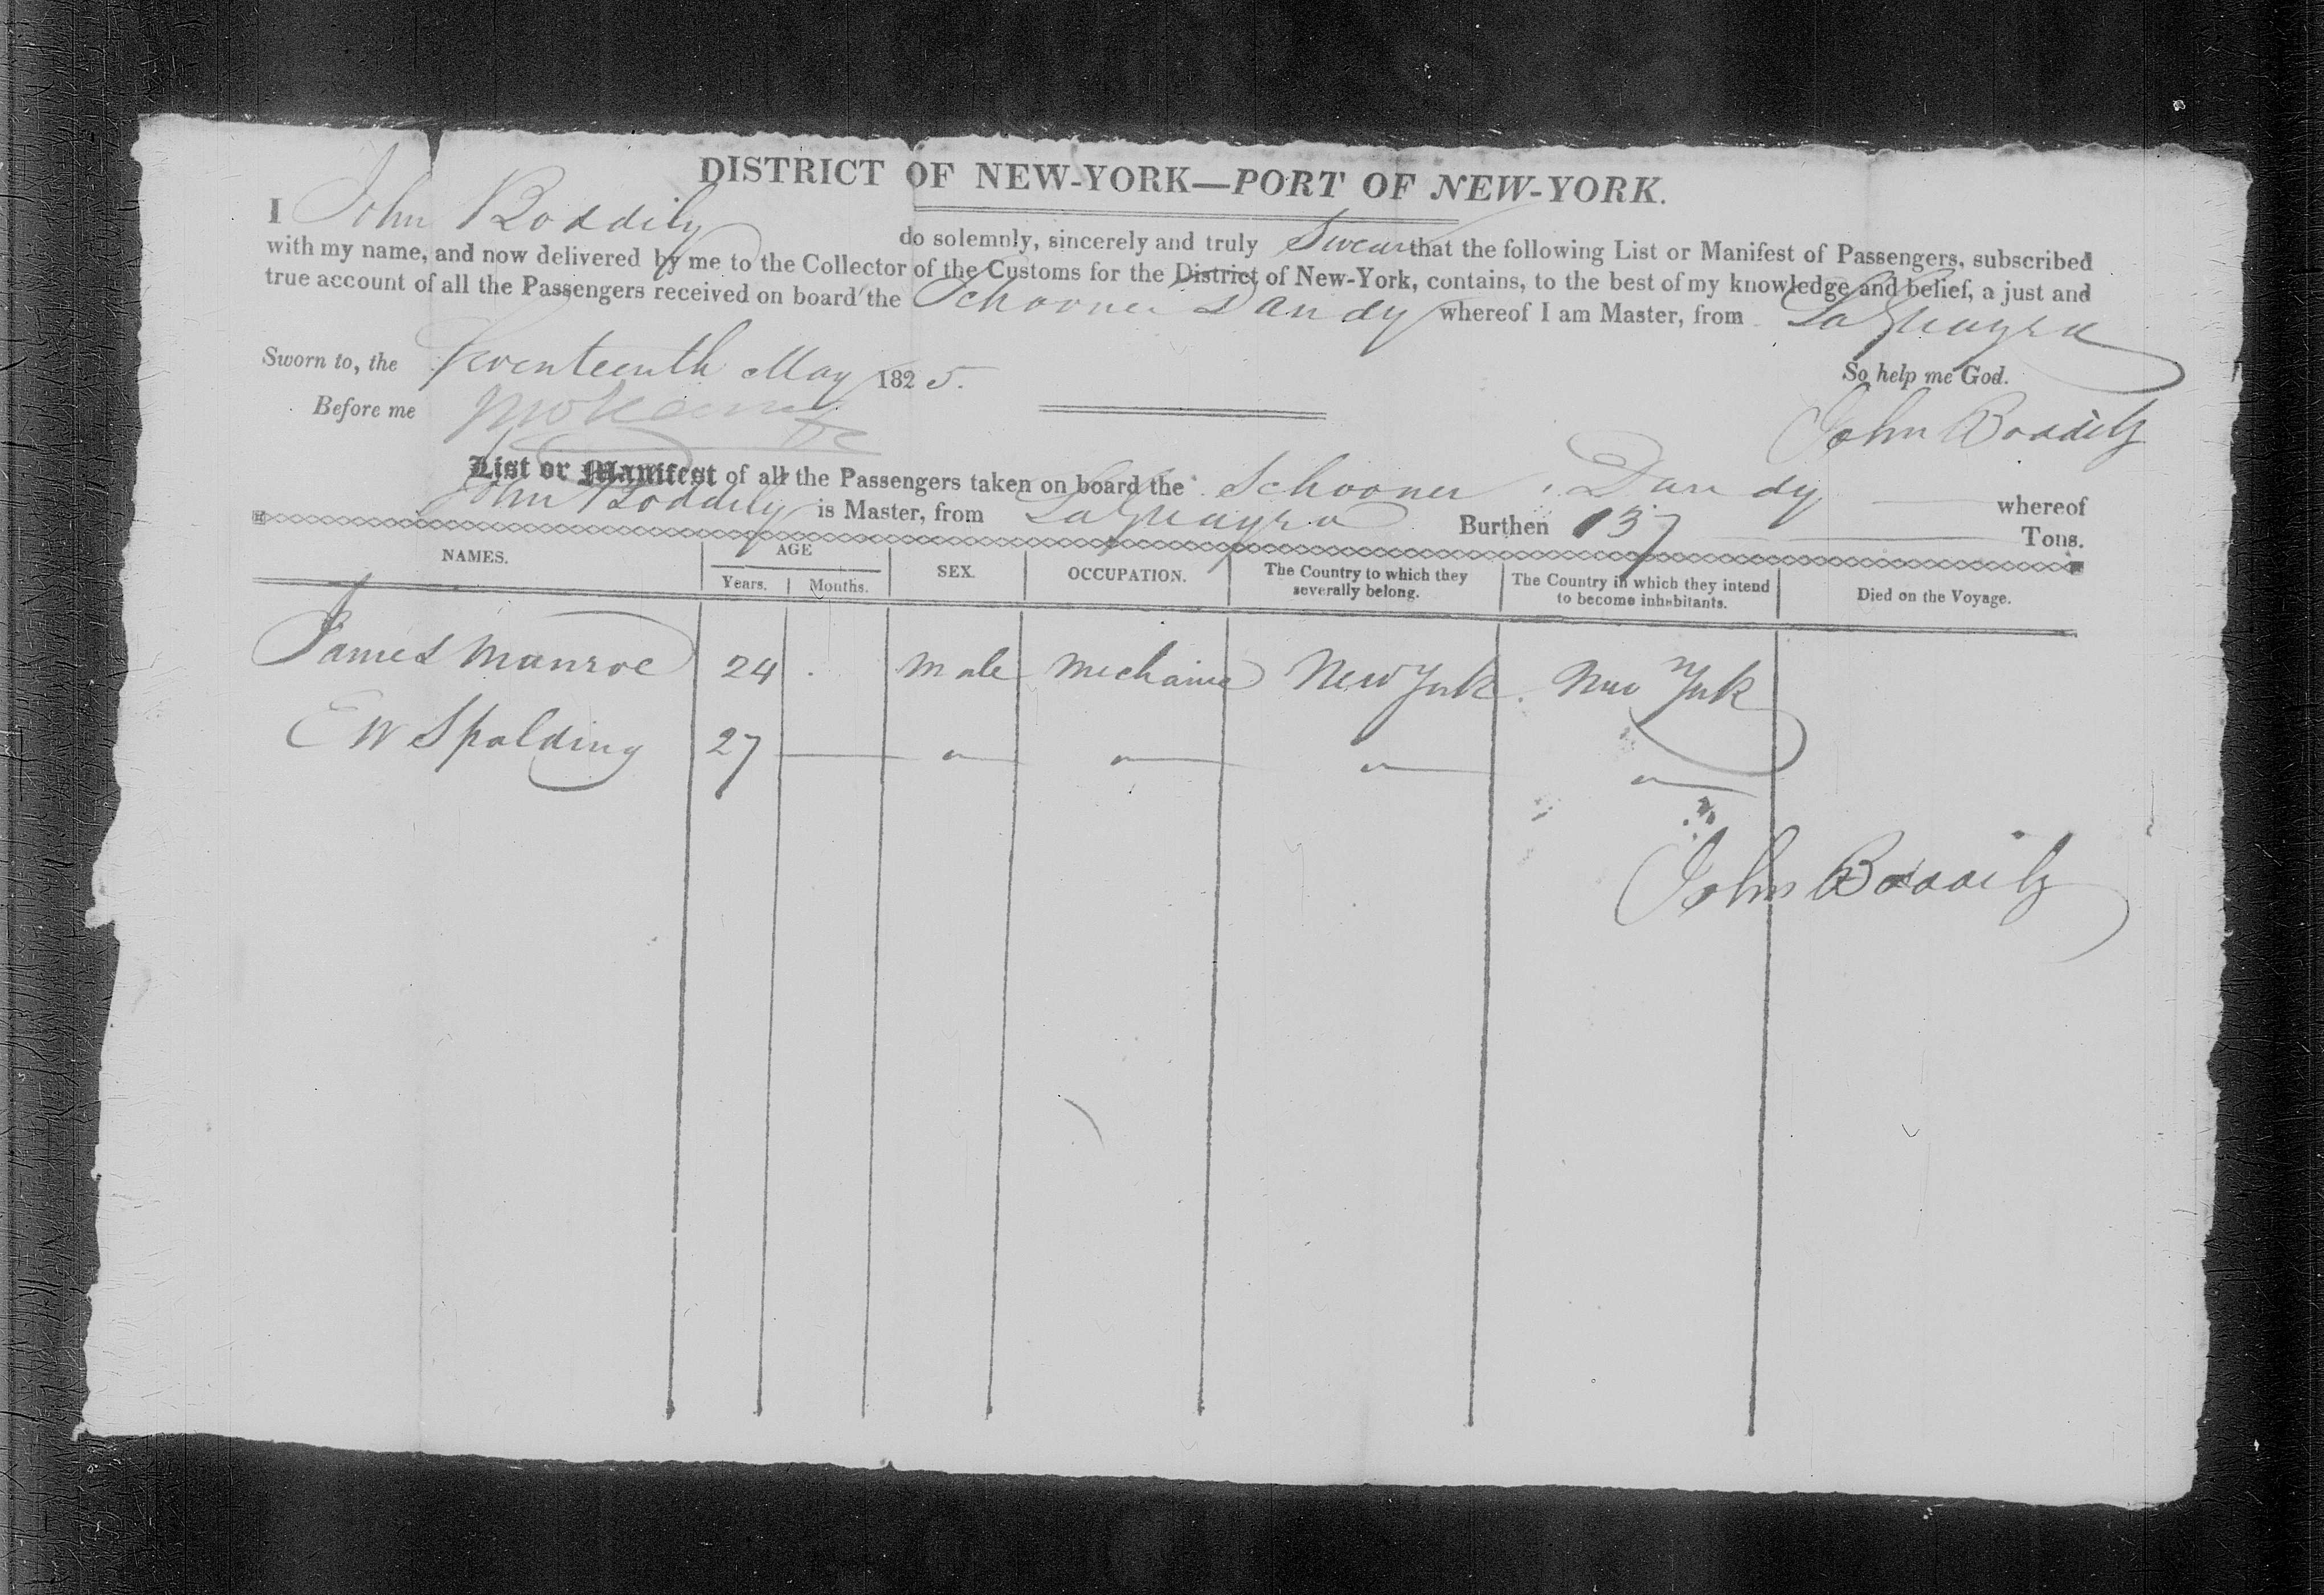 DISTRICT OF NEW-YORK—PORT OF NEW-YORK.
I John Boddily do solemnly, sincerely and truly Swear that the following List or Manifest of Passengers, subscribed
with my name, and now delivered by me to the Collector of the Customs for the District of New-York, contains, to the best of my knowledge and belief, a just and
true account of all the Passengers received on board the Schooner Dandy whereof I am Master, from LaGuayra
Sworn to, the Seventeenth May 1825. So help me God.
Before me
John Boddily
List or Manifest of all the Passengers taken on board the Schooner Dandy whereof
John Boddily is Master, from LaGuayra Burthen 137 Tons.
NAMES. AGE SEX. OCCUPATION. The Country to which they severally belong. The Country in which they intend to become inhabitants. Died on the Voyage.
Years. Months.
James Munroe 24 Male Mechanic New York New York
E W Spalding 27 — " " " "
John Boddily